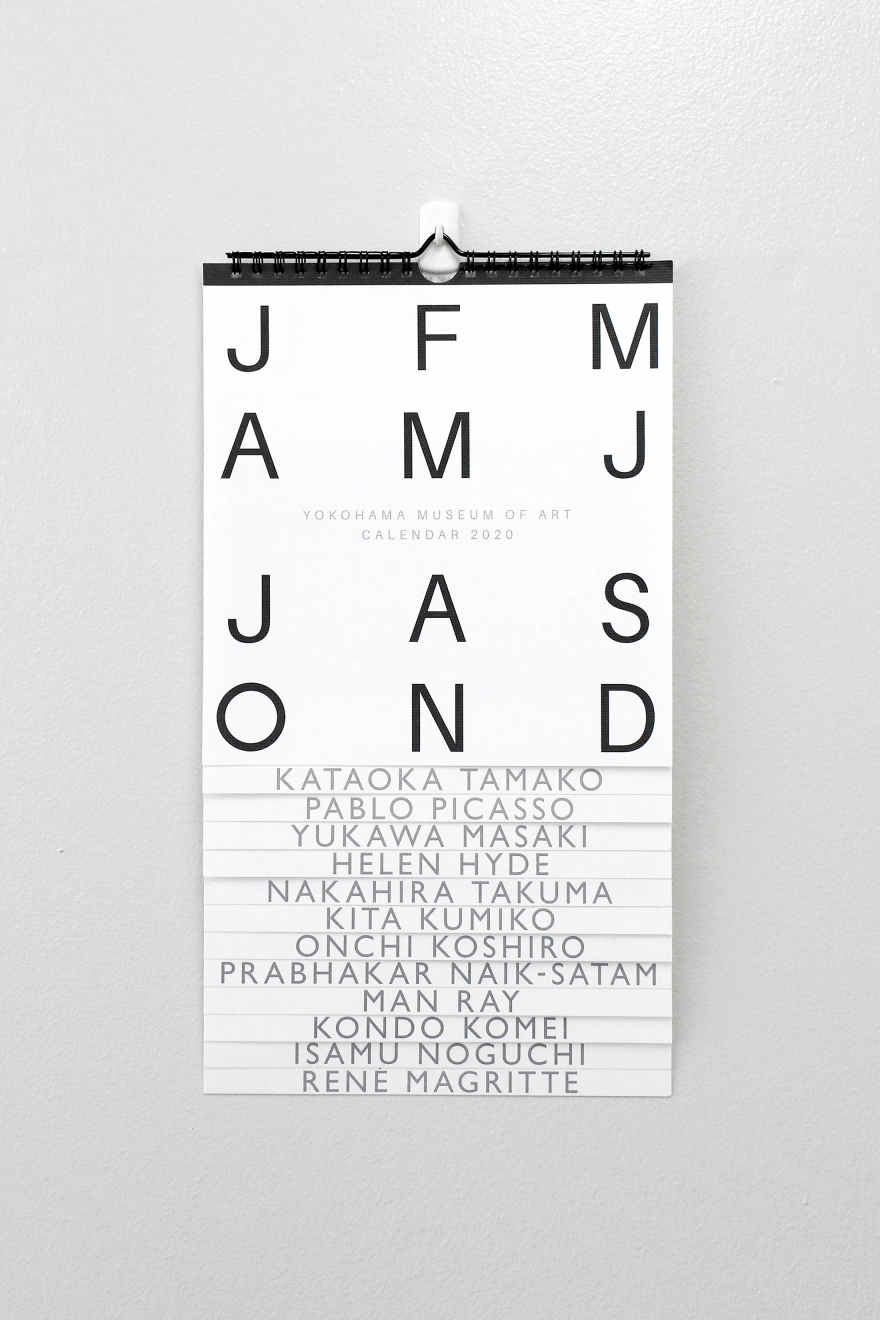 J F M
A M J
YOKOHAMA MUSEUM OF ART
CALENDAR 2020
J A S
O N D
KATAOKA TAMAKO
PABLO PICASSO
YUKAWA MASAKI
HELEN HYDE
NAKAHIRA TAKUMA
KITA KUMIKO
ONCHI KOSHIRO
PRABHAKAR NAIK-SATAM
MAN RAY
KONDO KOMEI
ISAMU NOGUCHI
RENÉ MAGRITTE